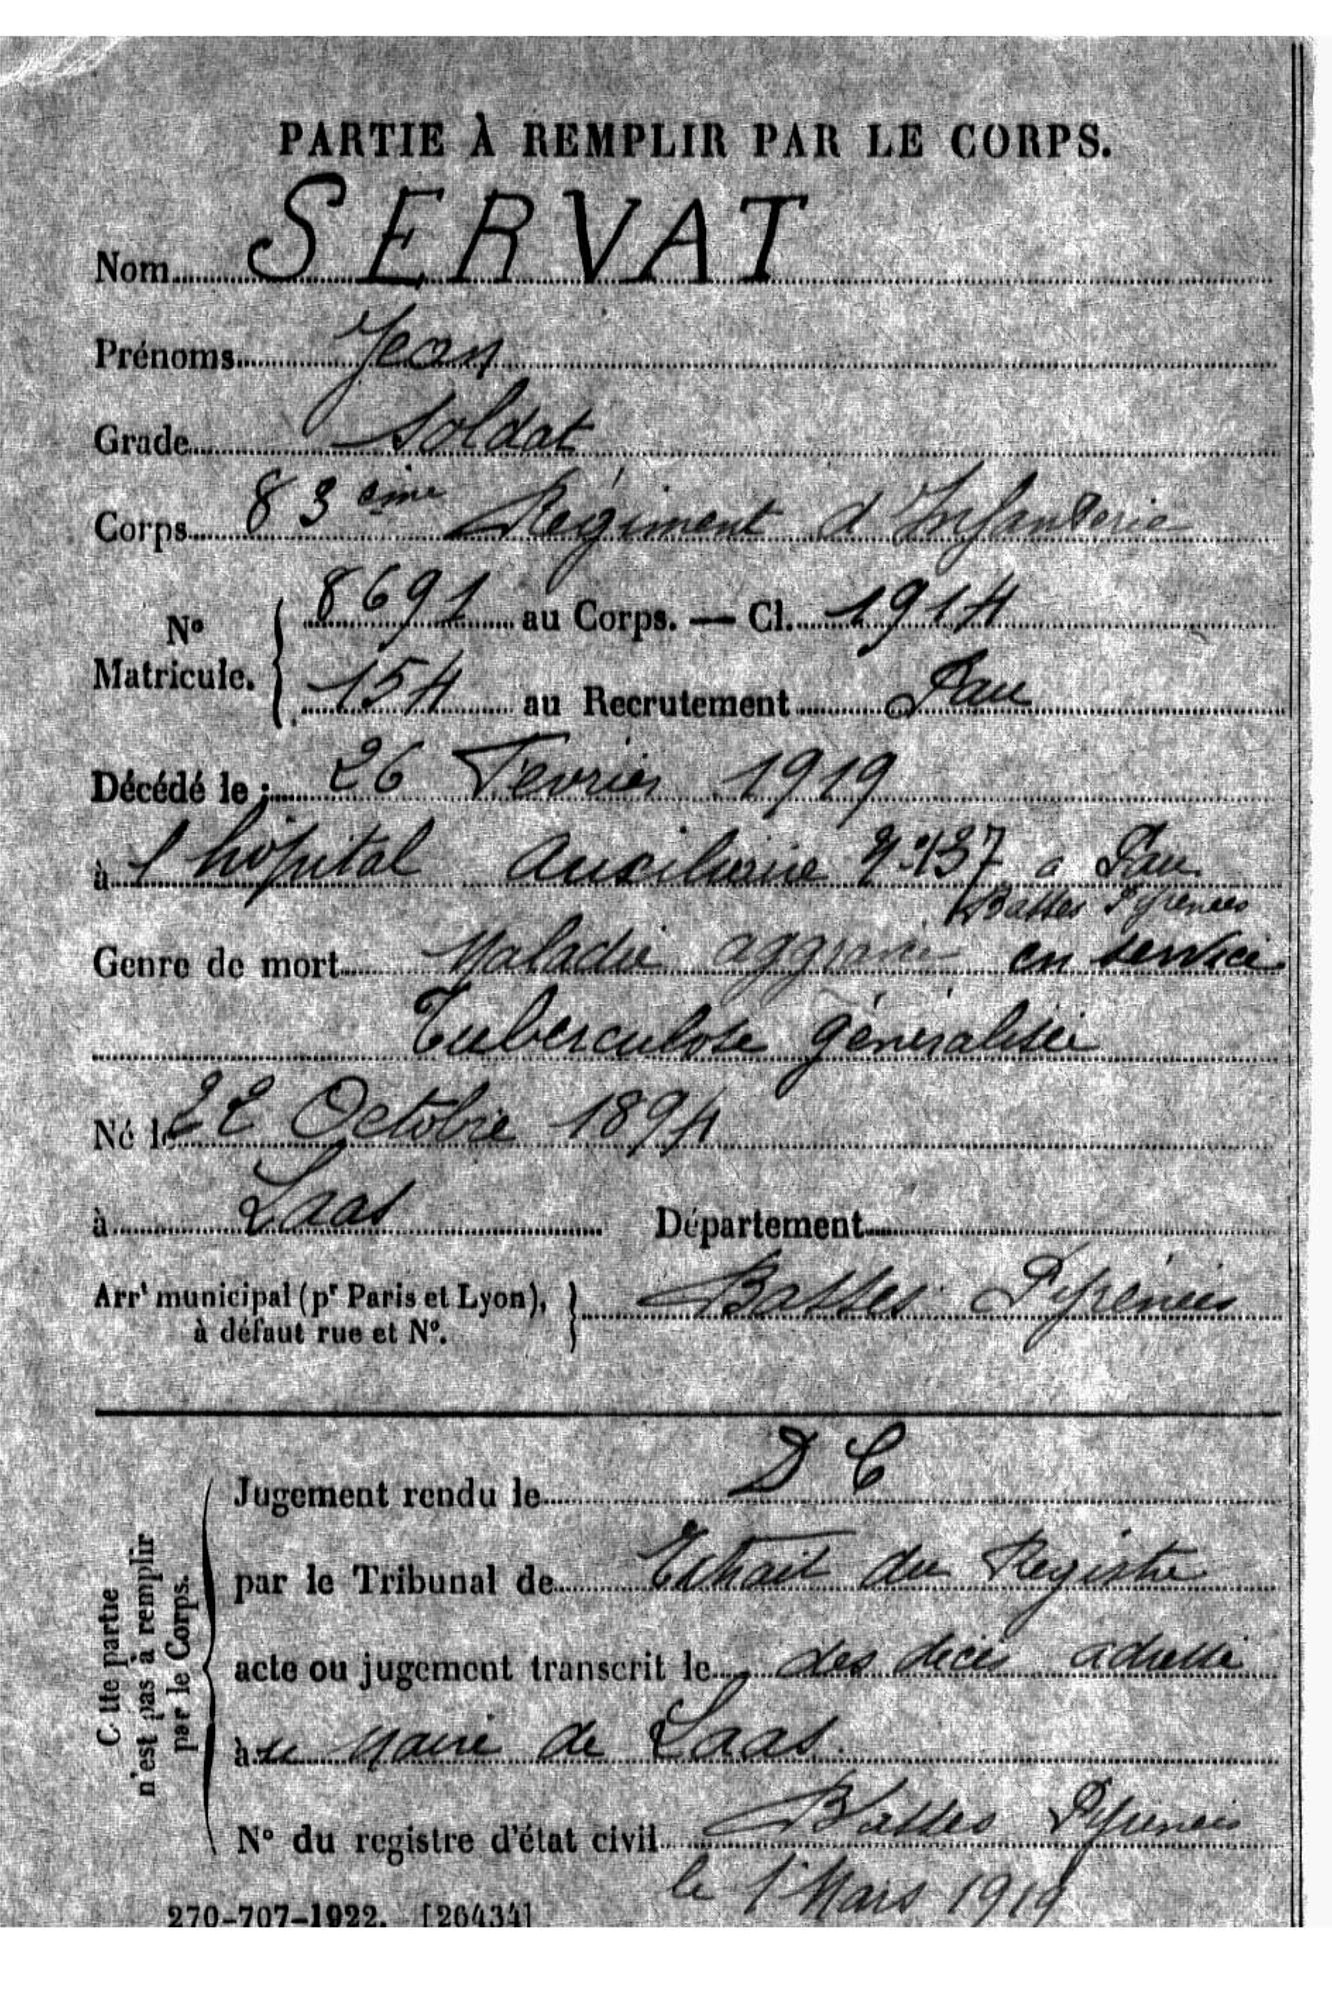 PARTIE À REMPLIR PAR LE CORPS.
Nom SERVAT
Prénoms Jean
Grade Soldat
Corps 83 eme Régiment d'Infanterie
N° Matricule. { 8691 au Corps. — Cl. 1914
154 au Recrutement Pau
Décédé le : 26 Fevrier 1919
à l'hôpital Auxiliaire N°137 a Pau
Basses Pyrenees
Genre de mort Maladie aggravée en service
Tuberculose généralisée
Né le 22 Octobre 1894
à Laas Département
Arrt municipal (pr Paris et Lyon), à défaut rue et N°. } Basses Pyrénées
Cette partie n'est pas à remplir par le Corps.
Jugement rendu le D C
par le Tribunal de Extrait du Registre
acte ou jugement transcrit le des décès adressé
à u Maire de Laas
N° du registre d'état civil Basses Pyrenees
le 1 Mars 1919
270-707-1922. [26434]